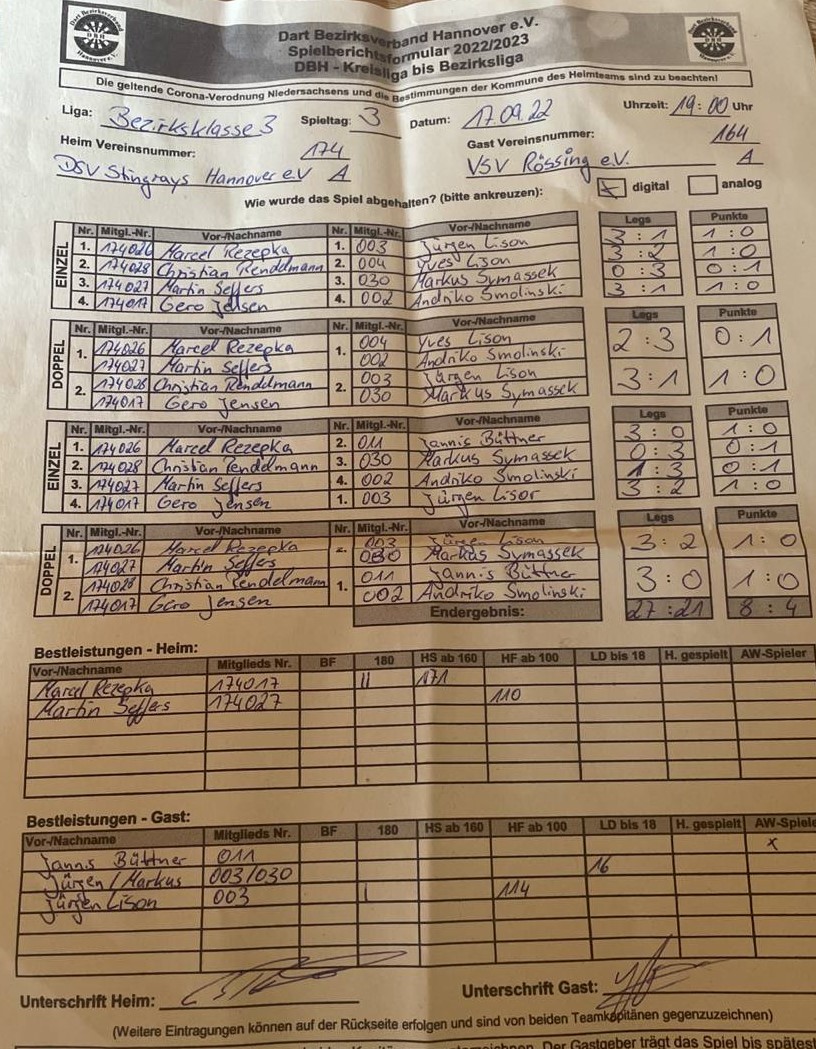 Dart Bezirksverband Hannover e.V.
Spielberichtsformular 2022/2023
DBH - Kreisliga bis Bezirksliga
Die geltende Corona-Verodnung Niedersachsens und die Bestimmungen der Kommune des Heimteams sind zu beachten!
Liga: Bezirksklasse 3 Spieltag: 3 Datum: 17.09.22 Uhrzeit: 19:00 Uhr
Heim Vereinsnummer: 174 Gast Vereinsnummer: 164
DSV Stingrays Hannover e.V A VSV Rössing e.V. A
Wie wurde das Spiel abgehalten? (bitte ankreuzen): x digital analog
EINZEL
Nr. Mitgl.-Nr. Vor-/Nachname Nr. Mitgl.-Nr. Vor-/Nachname Legs Punkte
1. 174026 Marcel Rezepka 1. 003 Jürgen Lison 3 : 1 1 : 0
2. 174028 Christian Rendelmann 2. 004 Yves Lison 3 : 2 1 : 0
3. 174027 Martin Seffers 3. 030 Markus Symassek 0 : 3 0 : 1
4. 174017 Gero Jensen 4. 002 Andriko Smolinski 3 : 1 1 : 0
DOPPEL
Nr. Mitgl.-Nr. Vor-/Nachname Nr. Mitgl.-Nr. Vor-/Nachname Legs Punkte
1. 174026 Marcel Rezepka 1. 004 Yves Lison 2 : 3 0 : 1
174027 Martin Seffers 002 Andriko Smolinski
2. 174028 Christian Rendelmann 2. 003 Jürgen Lison 3 : 1 1 : 0
174017 Gero Jensen 030 Markus Symassek
EINZEL
Nr. Mitgl.-Nr. Vor-/Nachname Nr. Mitgl.-Nr. Vor-/Nachname Legs Punkte
1. 174026 Marcel Rezepka 2. 011 Jannis Büttner 3 : 0 1 : 0
2. 174028 Christian Rendelmann 3. 030 Markus Symassek 0 : 3 0 : 1
3. 174027 Martin Seffers 4. 002 Andriko Smolinski 1 : 3 0 : 1
4. 174017 Gero Jensen 1. 003 Jürgen Lison 3 : 2 1 : 0
DOPPEL
Nr. Mitgl.-Nr. Vor-/Nachname Nr. Mitgl.-Nr. Vor-/Nachname Legs Punkte
1. 174026 Marcel Rezepka 2. 003 Jürgen Lison 3 : 2 1 : 0
174027 Martin Seffers 030 Markus Symassek
2. 174028 Christian Rendelmann 1. 011 Jannis Büttner 3 : 0 1 : 0
174017 Gero Jensen 002 Andriko Smolinski
Endergebnis: 27 : 21 8 : 4
Bestleistungen - Heim:
Vor-/Nachname Mitglieds Nr. BF 180 HS ab 160 HF ab 100 LD bis 18 H. gespielt AW-Spieler
Marcel Rezepka 174017 || 171
Martin Seffers 174027 110
Bestleistungen - Gast:
Vor-/Nachname Mitglieds Nr. BF 180 HS ab 160 HF ab 100 LD bis 18 H. gespielt AW-Spiele
Jannis Büttner 011 x
Jürgen / Markus 003/030 16
Jürgen Lison 003 | 114
Unterschrift Heim: Unterschrift Gast:
(Weitere Eintragungen können auf der Rückseite erfolgen und sind von beiden Teamkapitänen gegenzuzeichnen)
Der Gastgeber trägt das Spiel bis spätest